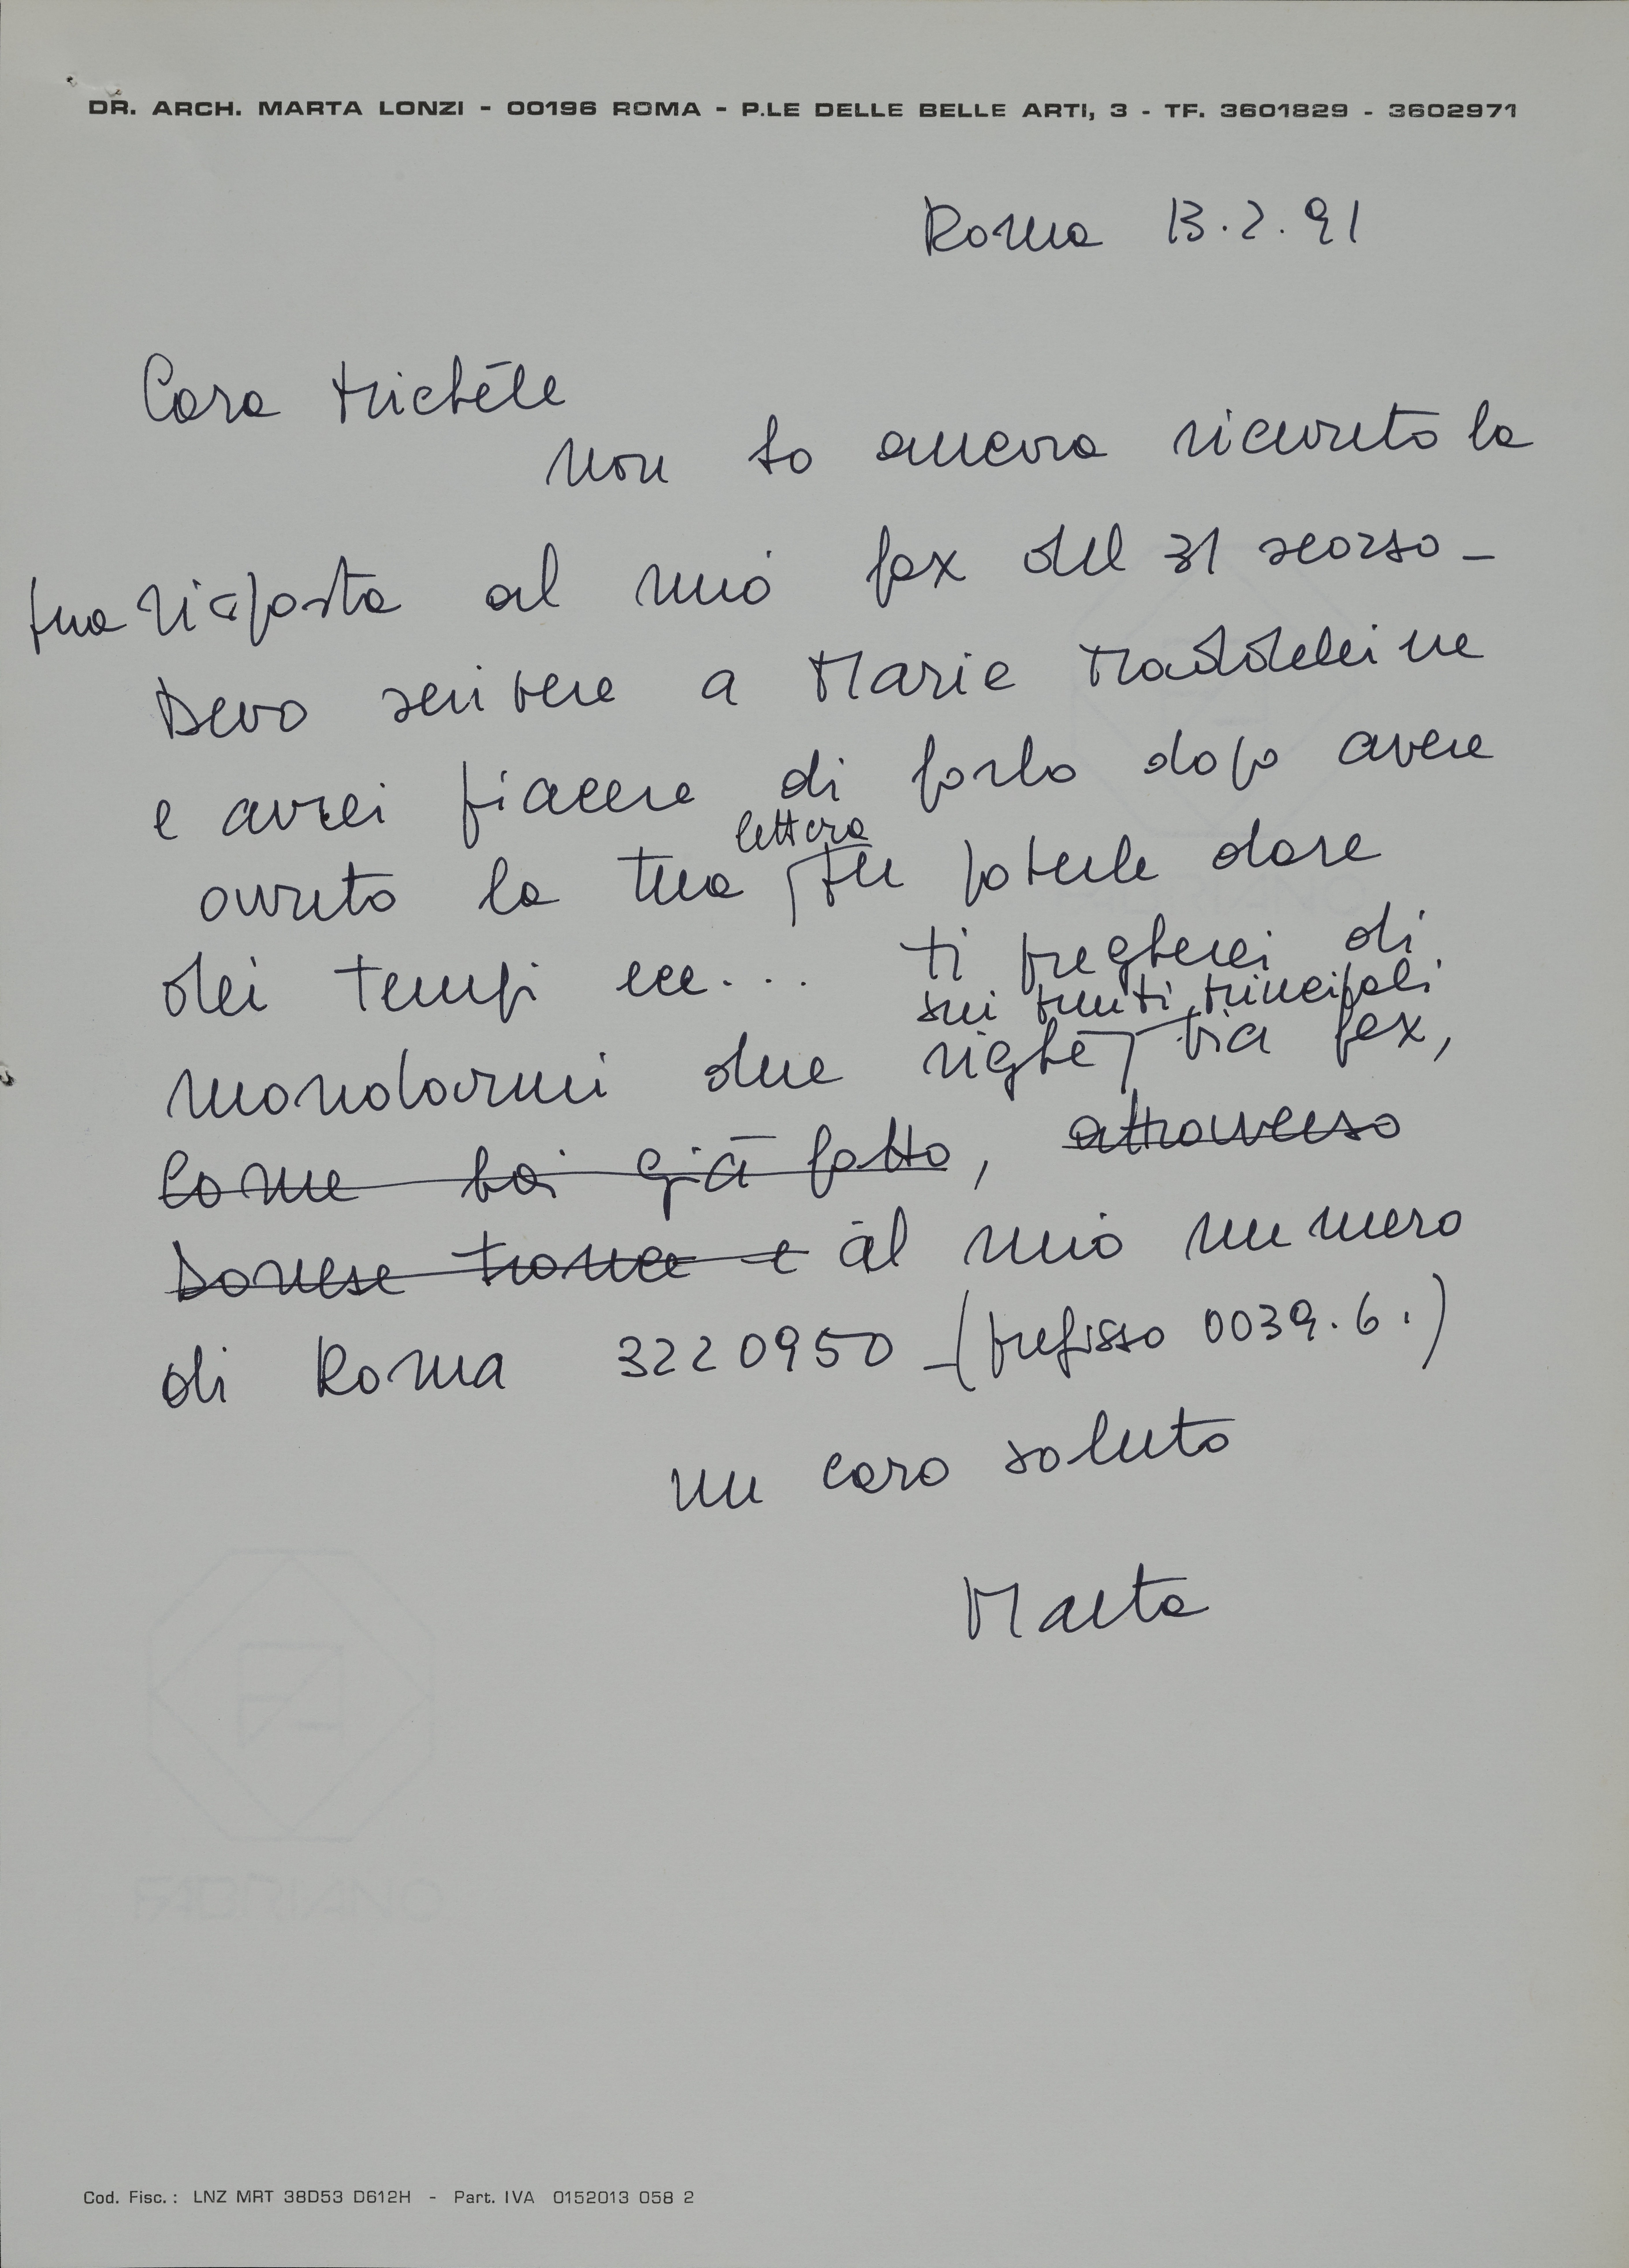 DR. ARCH. MARTA LONZI - 00196 ROMA - P.LE DELLE BELLE ARTI, 3 - TF. 3601829 - 3602971
Roma 13.2.91
Cara Michéle
non ho ancora ricevuto la
tua risposta al mio fax del 31 scorso -
Devo scrivere a Marie Maddeleine
e avrei piacere di farlo dopo avere
avuto la tua lettera per poterle dare
dei tempi ecc... ti pregherei di
sui punti principali
mandarmi due righe via fax,
come hai già fatto, attraverso
Danese tronca e al mio numero
di Roma 3220950 - (prefisso 0039.6.)
un caro saluto
Marta
FABRIANO
Cod. Fisc.: LNZ MRT 38D53 D612H - Part. IVA 0152013 058 2